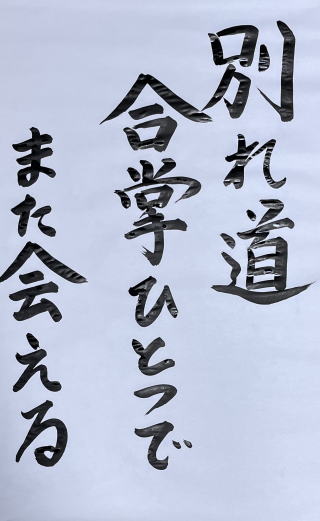 別れ道
合掌ひとつで
また会える